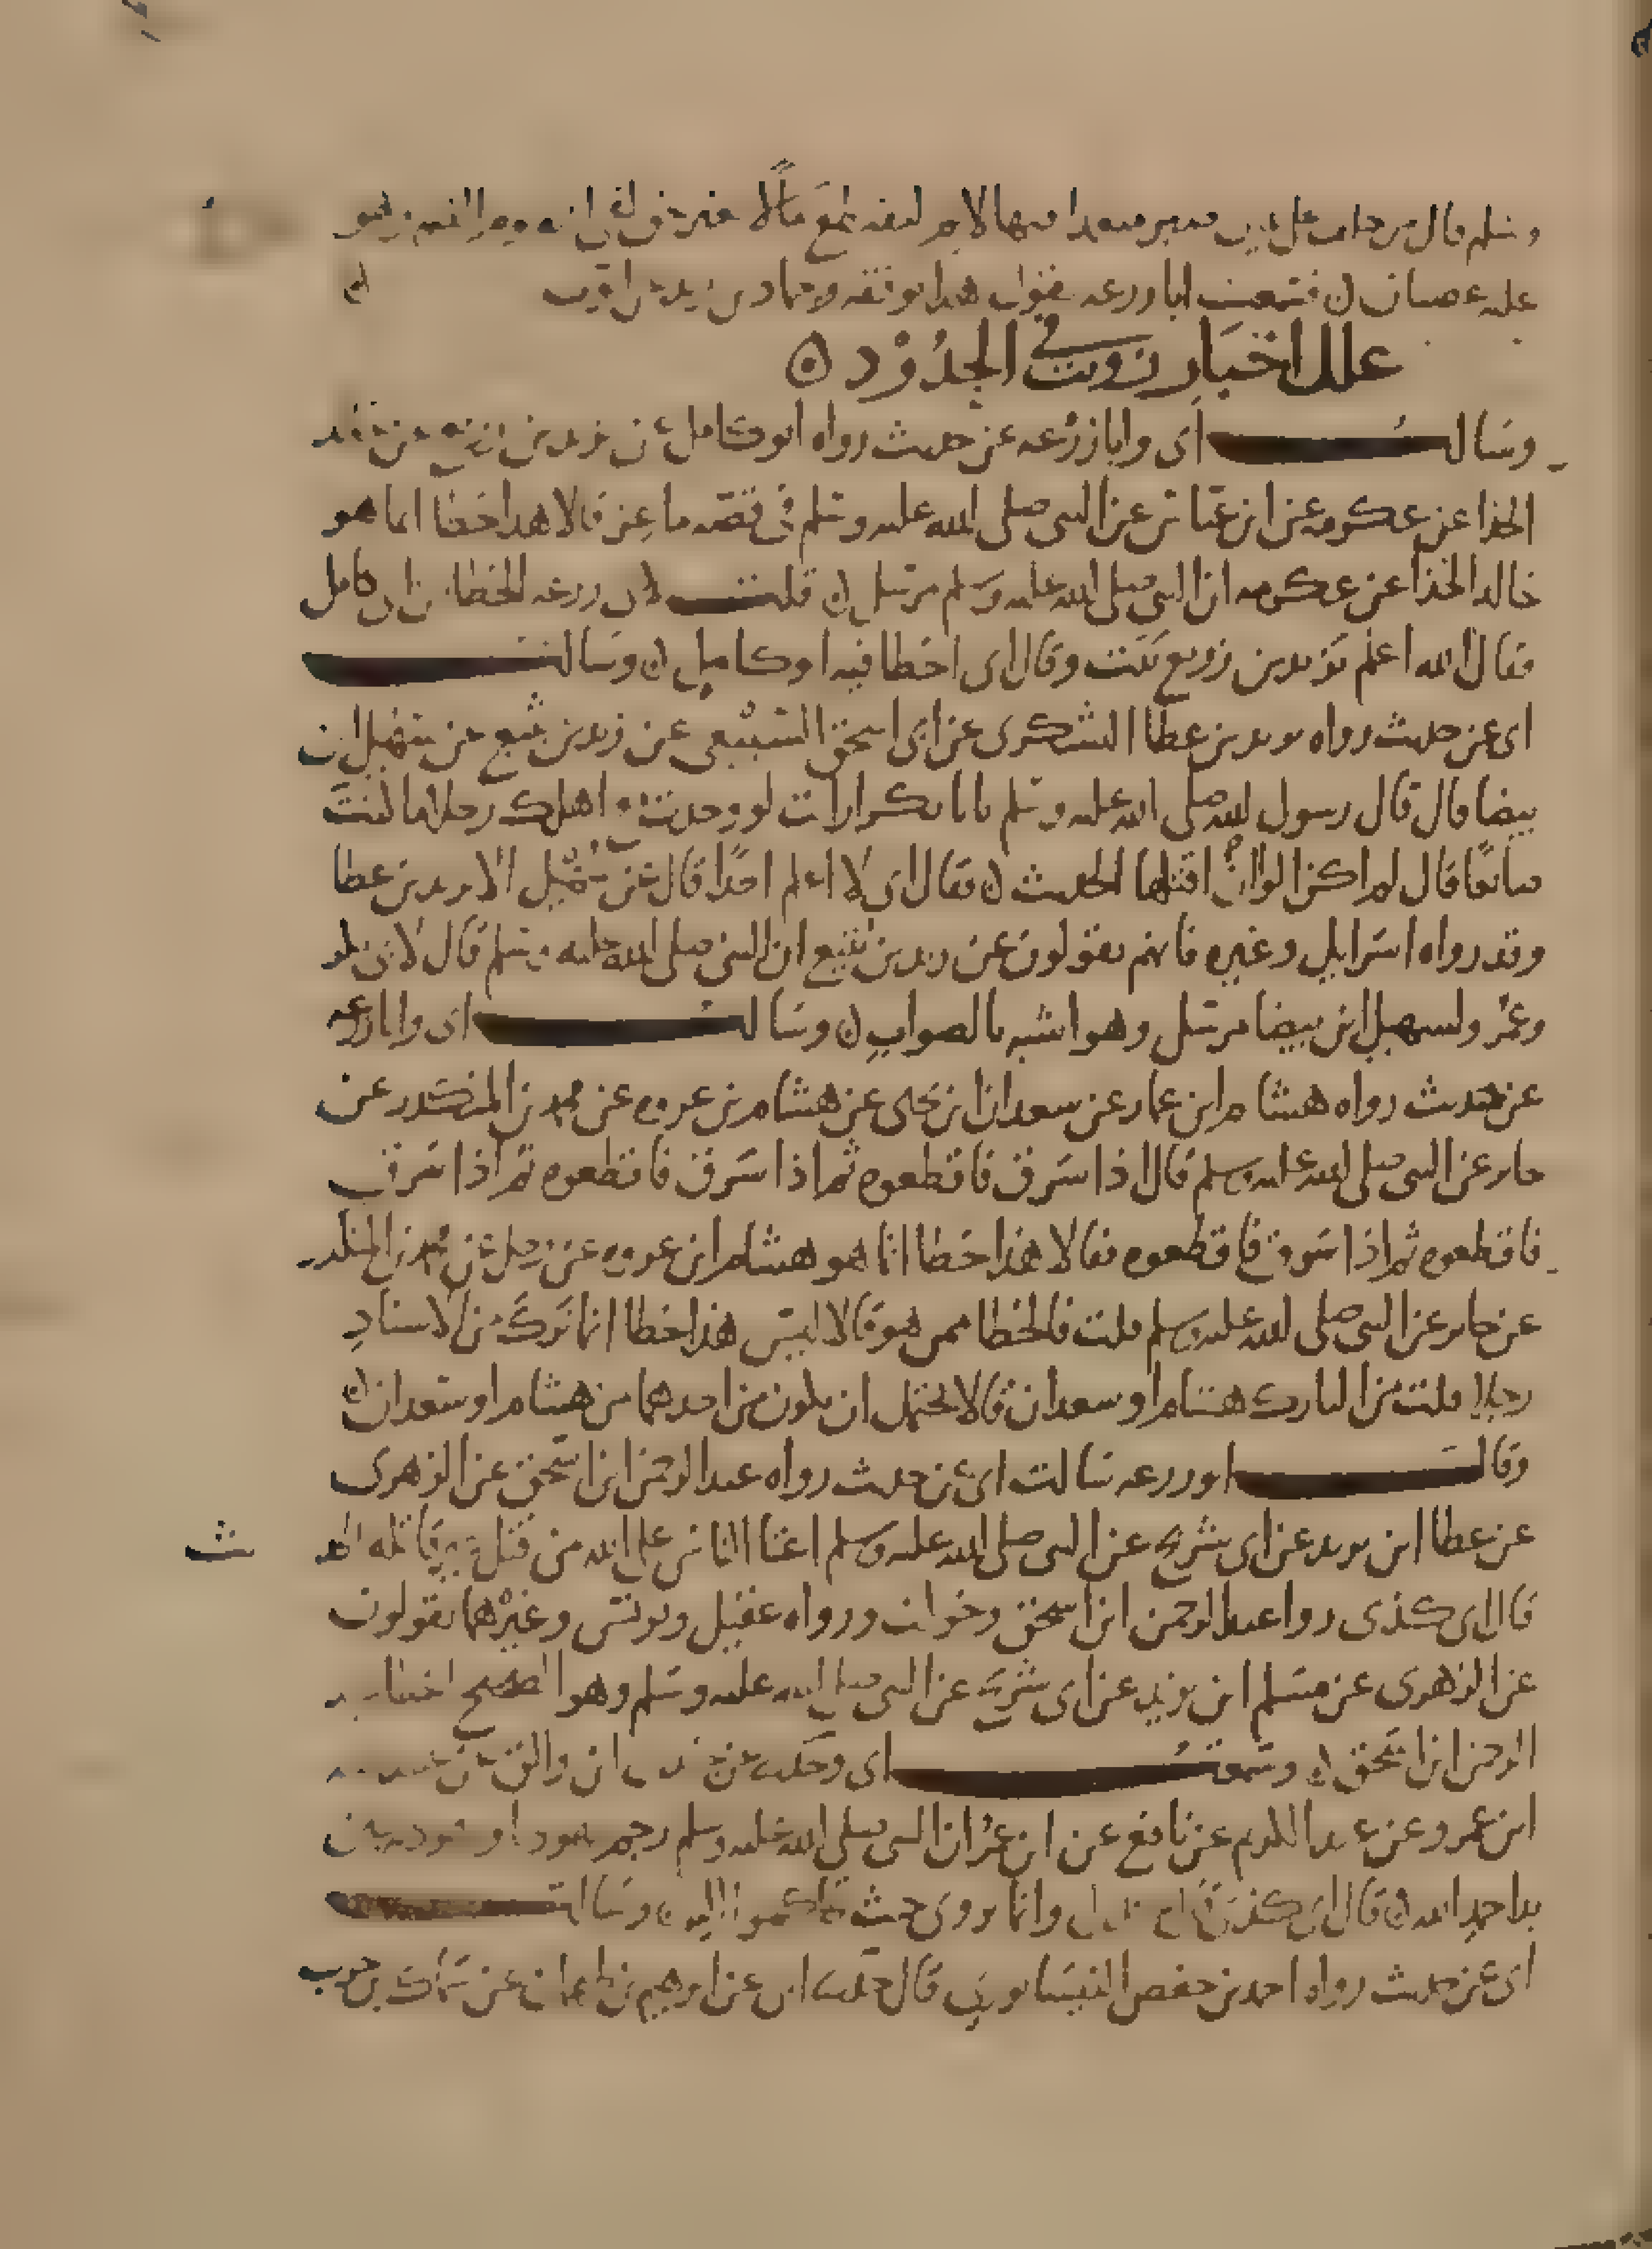 وسلم قال من حلف على يمين صبر متعمدا فيها لاثم ليقتطع مالا بغير حق لقي الله يوم القيمة وهو
عليه غضبان ن فسمعت ابا زرعة يقول هذا يوقفه حماد بن زيد عن ايوب
علل اخبار رويت في الحدود ن
وسالت ابي وابا زرعه عن حديث رواه ابو كامل عن يزيد بن زريع عن خالد
الحذا عن عكرمه عن ابن عباس عن النبي صلى الله عليه وسلم في قصه ماعز فقالا هذا خطا انما هو
خالد الحذا عن عكرمه ان النبي صلى الله عليه وسلم مرسل ن قلت لابي زرعه الخطا من ابي كامل
فقال الله اعلم يزيد بن زريع ثبت وقال ابي اخطا فيه ابو كامل ن وسالت
ابي عن حديث رواه يزيد بن عطا اليشكري عن ابي اسحق السبيعي عن زيد بن يثيع عن سهيل ابن
بيضا قال قال رسول الله صلى الله عليه وسلم يا با بكر ارايت لو وجدت مع اهلك رجلا ما كنت
صانعا قال لم اكن الوا ان اقتلها الحديث ن فقال ابي لا اعلم احدا قال عن سهيل الا يزيد بن عطا
وقد رواه اسرايل وغيره فانهم يقولون عن زيد بن يثيع ان النبي صلى الله عليه وسلم قال لابي بكر
وعمر ولسهيل ابن بيضا مرسل وهو اشبه بالصواب ن وسالت ابي وابا زرعه
عن حديث رواه هشام ابن عمار عن سعدان ابن يحيى عن هشام بن عروه عن محمد بن المنكدر عن
جابر عن النبي صلى الله عليه وسلم قال اذا سرق فاقطعوه ثم اذا سرق فاقطعوه ثم اذا سرق
فاقطعوه ثم اذا سرق فاقطعوه فقالا هذا خطا انما هو هشام ابن عروه عن رجل عن محمد بن المنكدر
عن جابر عن النبي صلى الله عليه وسلم قلت فالخطا ممن هو قالا ليس هذا خطا انما ترك من الاسناد
رجلا قلت من التارك هشام او سعدان قالا يحتمل ان يكون من احدهما من هشام او سعدان ن
وقال ابو زرعه سالت ابي عن حديث رواه عبد الرحمن ابن اسحق عن الزهري
عن عطا ابن يزيد عن ابي شريح عن النبي صلى الله عليه وسلم اعتا الناس على الله من قتل غير قاتله الحد
يث
قال ابي كذى روا عبد الرحمن ابن اسحق ورواه عقيل ويونس وغيرهما يقولون
عن الزهري عن مسلم ابن يزيد عن ابي شريح عن النبي صلى الله عليه وسلم وهو الصحيح اخطا عبد
الرحمن ابن اسحق ن وسمعت ابي وحدث عن
ابن عمرو عن عبد الكريم عن نافع عن ابن عمر ان النبي صلى الله عليه وسلم رجم يهوديا ويهوديه
ن قال ابي وانما يروي حديث ن وسالت
ابي عن حديث رواه احمد بن حفص النيسابوري قال حدثنا ابي عن ابرهيم بن طهمان عن سماك بن حرب